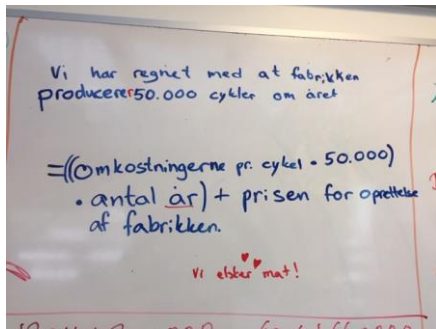 Vi har regnet med at fabrikken
producerer 50.000 cykler om året
=((Omkostningerne pr. cykel • 50.000)
• antal år) + prisen for oprettelse
af fabrikken.
Vi elsker mat!